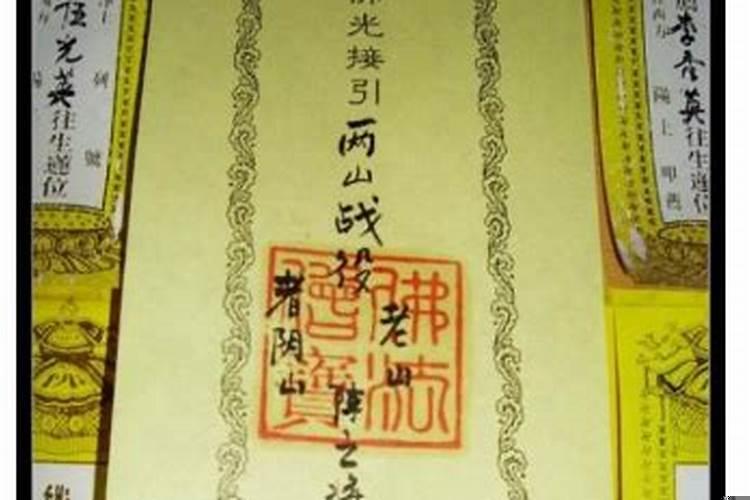 佛光接引两山战役
老山
者阴山
阵亡
佛法僧寶
伍光英往生蓮位
英往生蓮位
號
陽上